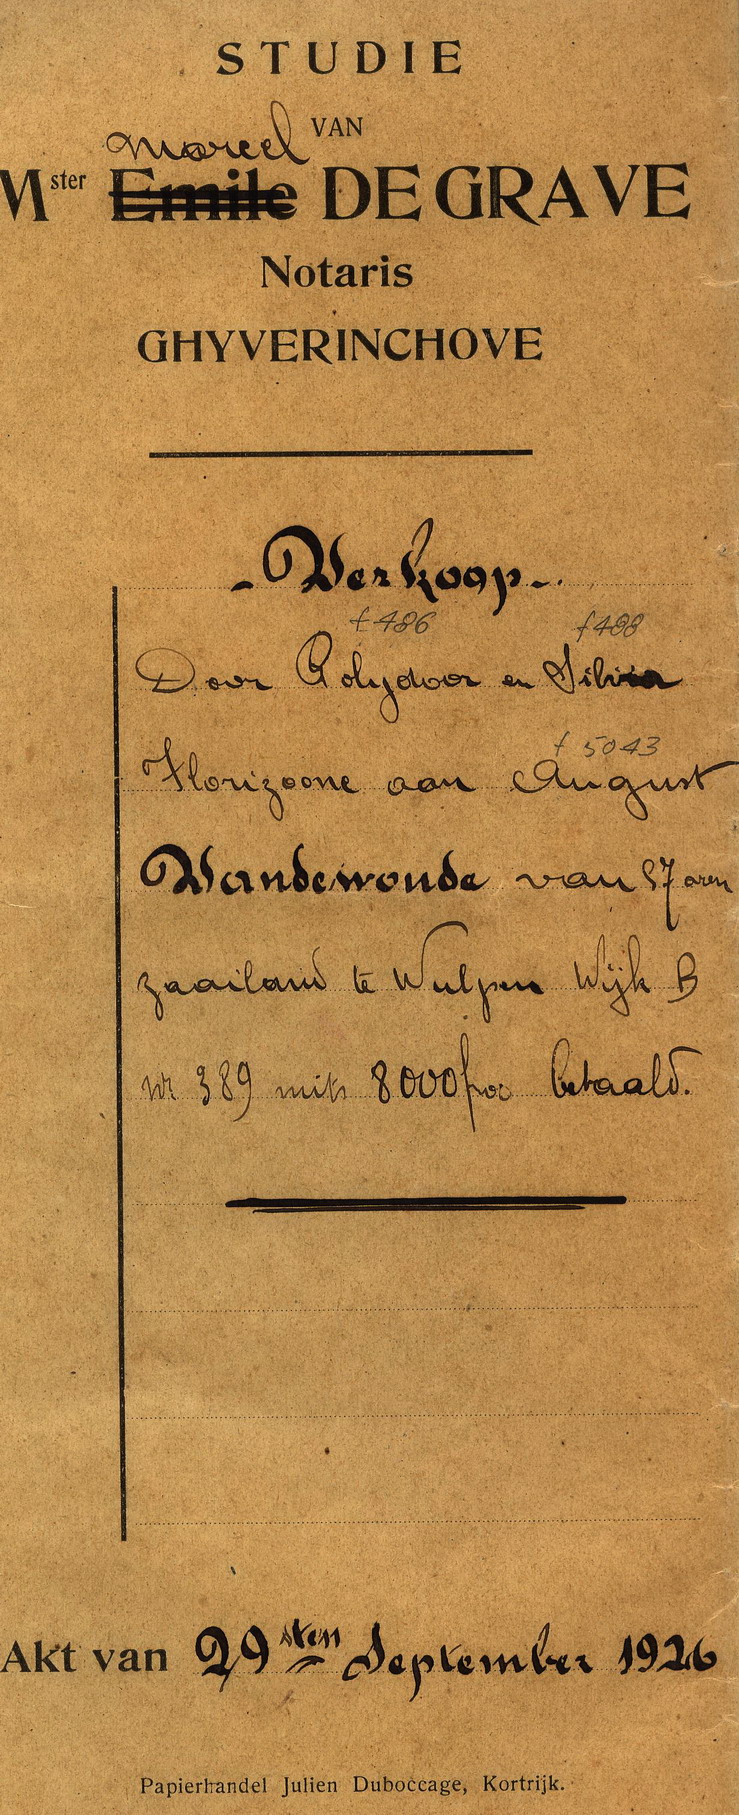 STUDIE
VAN
Marcel
Mster Emile DE GRAVE
Notaris
GHYVERINCHOVE
- Verkoop -
f 486 f 488
Door Polydoor en Silvia
f 5043
Florizoone aan August
Vandewoude van 57 aren
zaailand te Wulpen Wijk B
nr 389 mits 8000 fr betaald.
Akt van 29sten September 1926
Papierhandel Julien Duboccage, Kortrijk.